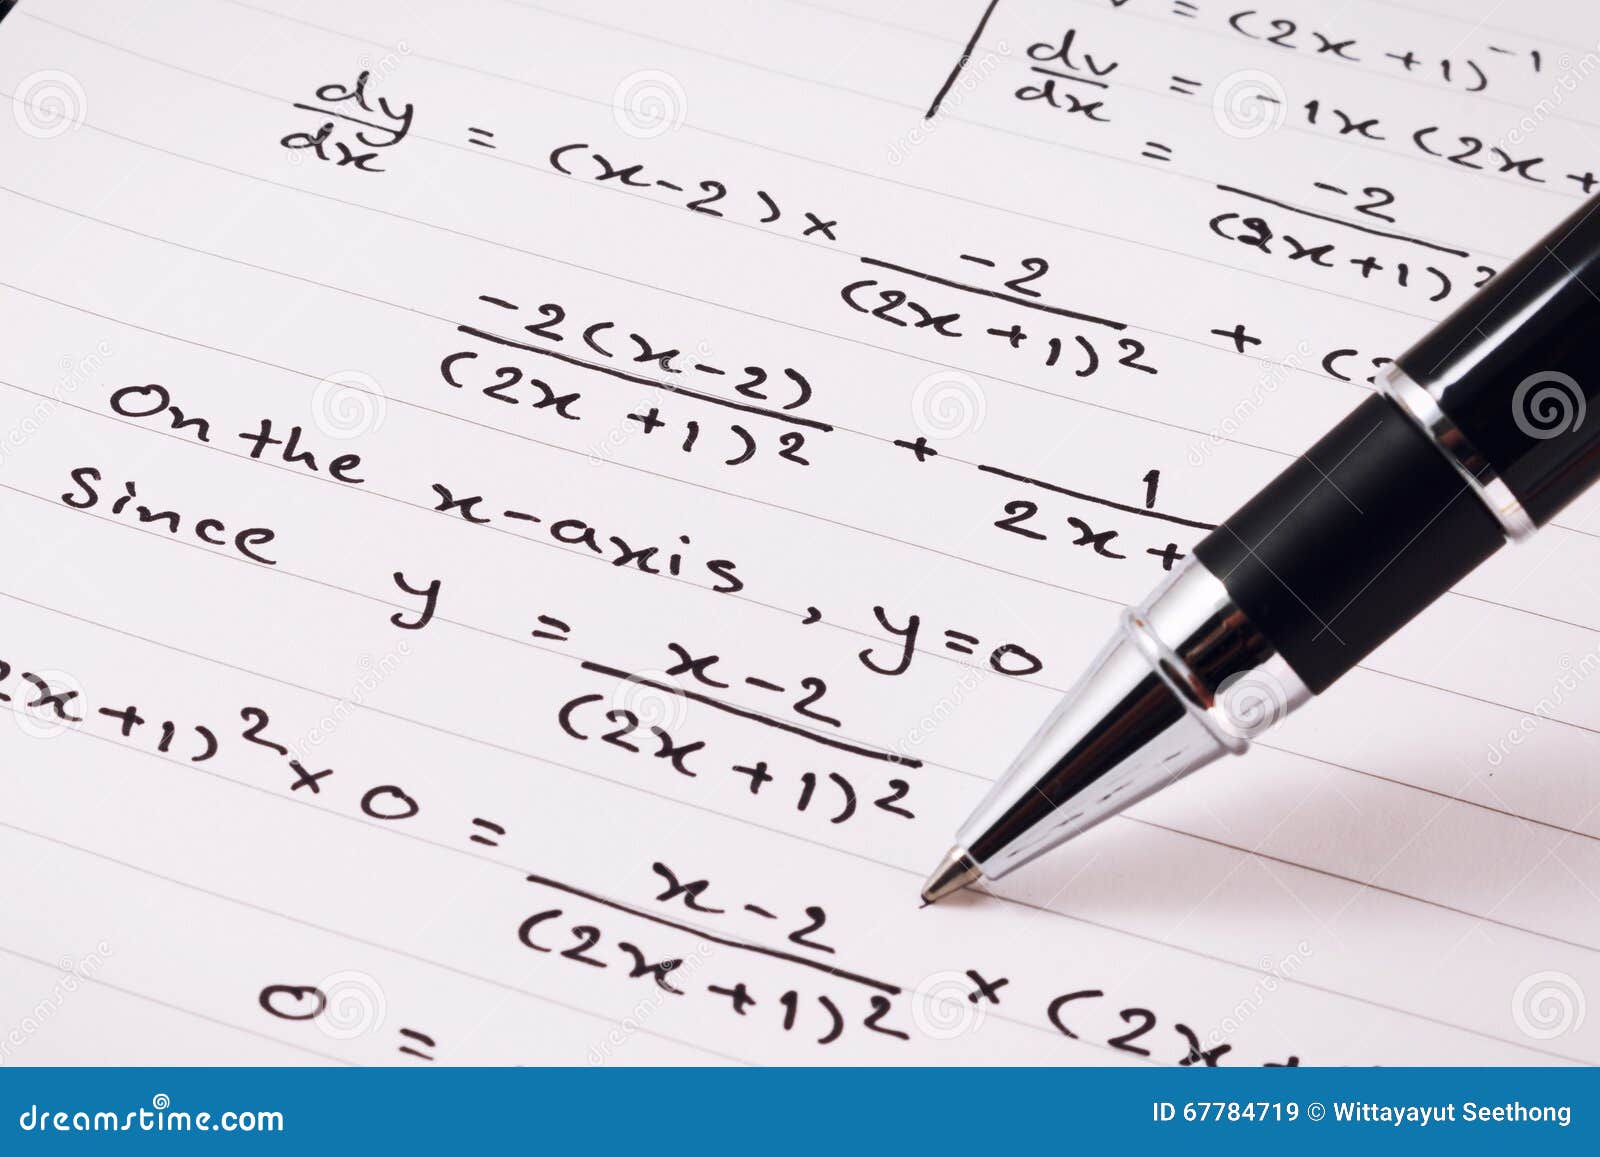 v = (2x+1)^-1
dv/dx = -1x (2x+
= -2/(2x+1)^2
dy/dx = (x-2) x -2/(2x+1)^2 + (2
-2(x-2)/(2x+1)^2 + 1/2x+
On the x-axis, y=0
Since y = x-2/(2x+1)^2
2x+1)^2 x 0 = x-2/(2x+1)^2 x (2x+
0 =
dreamstime.com
ID 67784719 © Wittayayut Seethong